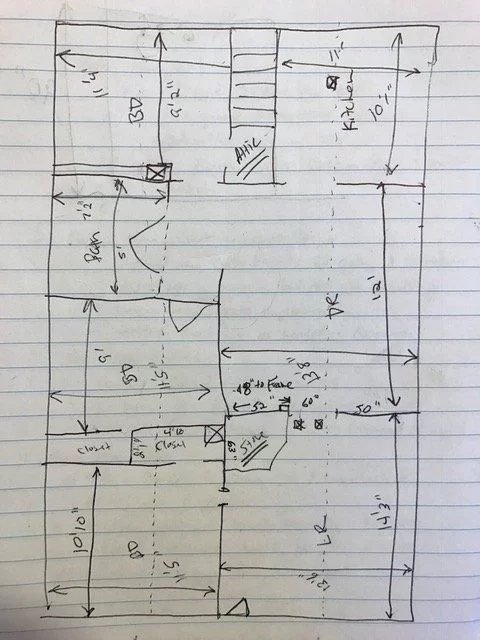 11'4"
BD
9'2"
Attic
Kitchen
7'2
Bath
5'
DR
12'
9'
BD
11'5"
13'8"
48" to Frame
52"
60"
50"
Closet
4'10
Closet
63"
Stove
10'10"
BD
11'5"
LR
14'3"
13'6"